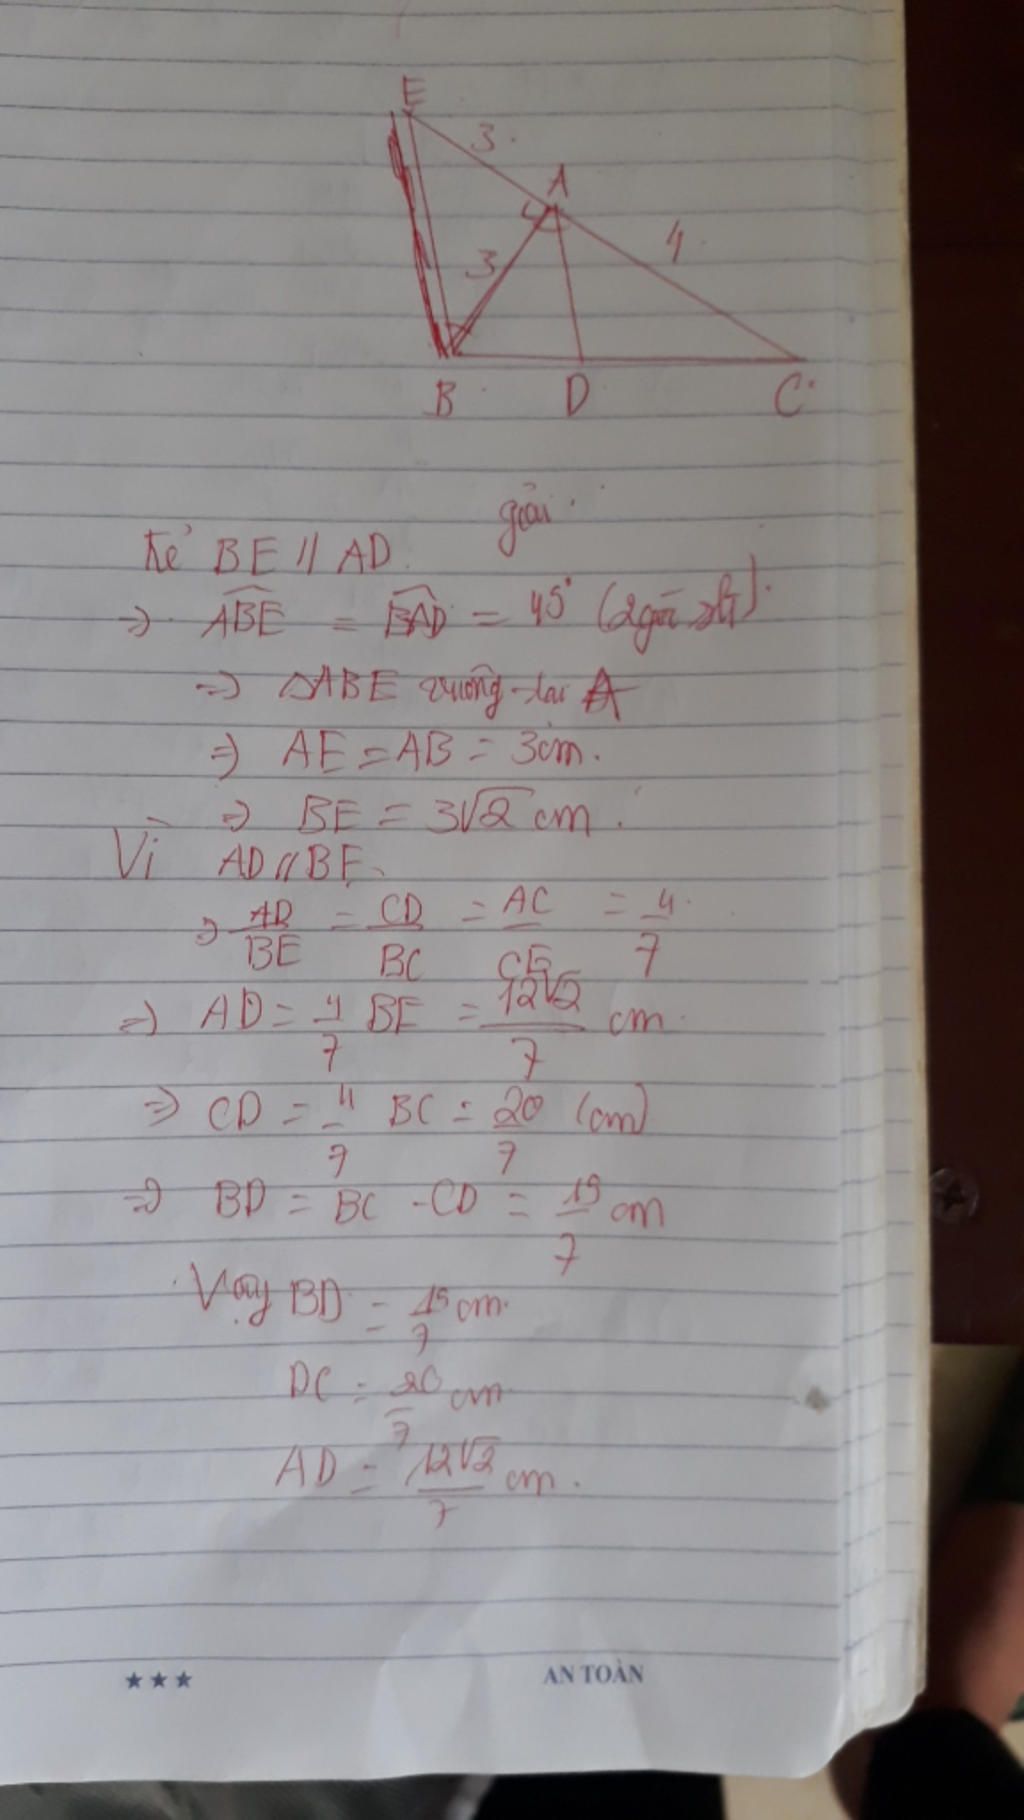 E
3
A
4
3
B D C
giải
Kẻ BE // AD.
=> ABE = BAD = 45° (2 góc slt).
=> △ABE vuông tại A
=> AE = AB = 3cm.
=> BE = 3√2 cm.
Vì AD // BE.
=> AD/BE = CD/BC = AC/CE = 4/7
=> AD = 4/7 BE = 12√2/7 cm
=> CD = 4/7 BC = 20/7 (cm)
=> BD = BC - CD = 15/7 cm
Vậy BD = 15/7 cm.
DC = 20/7 cm
AD = 12√2/7 cm.
★★★ AN TOÀN